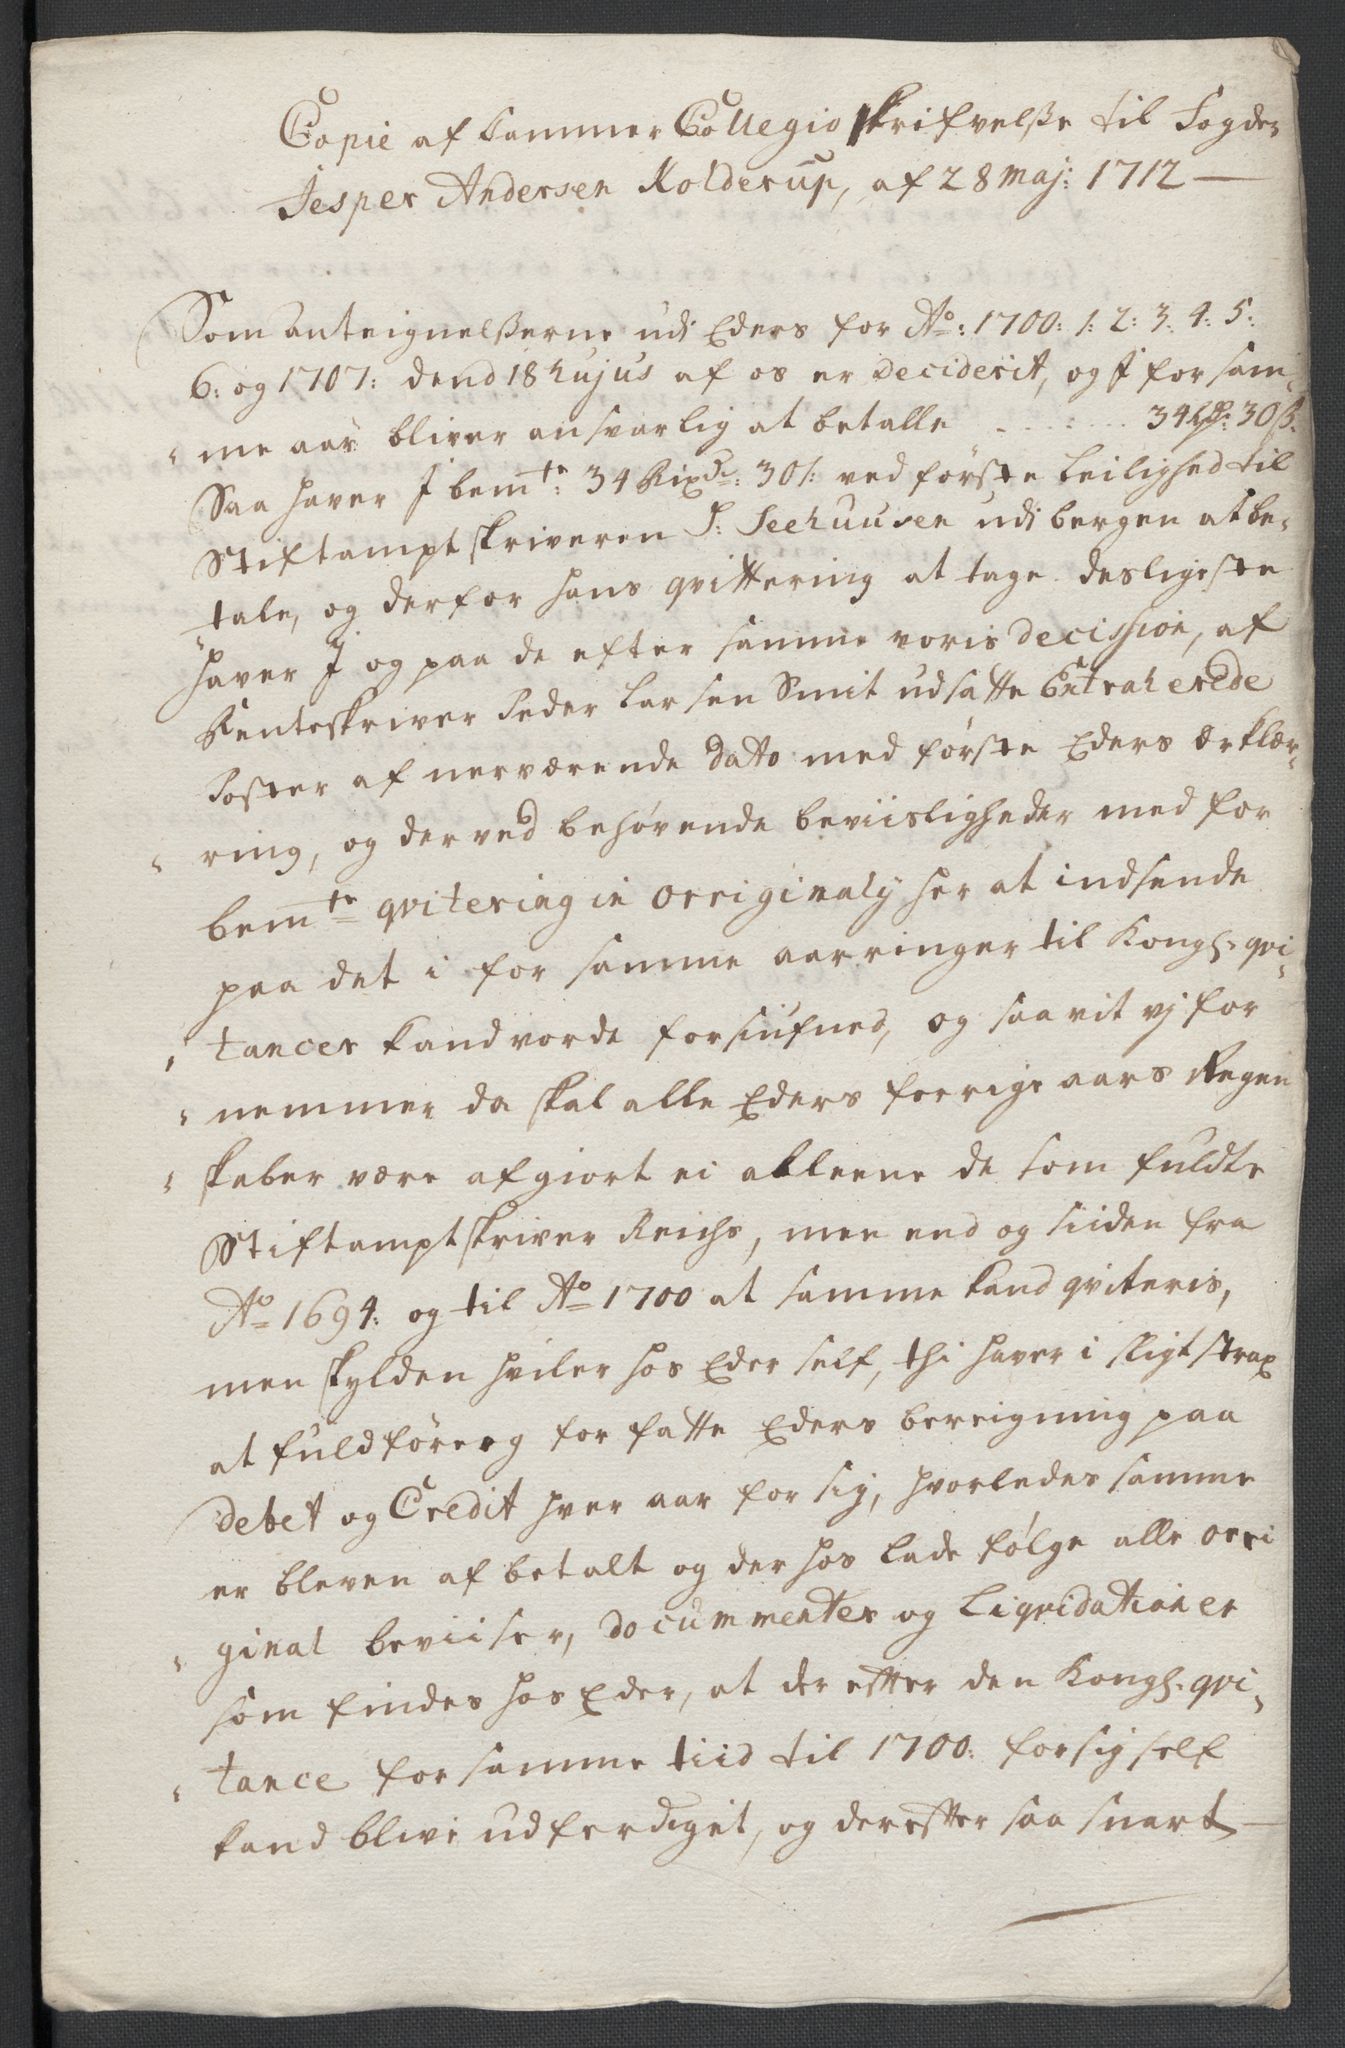 Copie af Cammer Collegio skrifvelsse til Fogden
Jesper Andersen Kolderup, af 28 Maj: 1712
Som Anteignelsserne udi Eders for Ao: 1700: 1: 2: 3: 4: 5:
6: og 1707: dend 18 hujus af os er Deciderit, og J for sam„
„ me aar bliver ansvarlig at betalle . . . . . . . 34 Rdr: 30 ß:
Saa haver J bemte: 34 Rixdr: 30 ß: ved første Leilighed til
Stiftamptskriveren S: Seehuusen udi bergen at be„
„ tale, og derfor hans qvittering at tage. desligeste
haver J og paa de efter samme voris decission, af
Renteskriver Peder Larsen Smit udsatte Extraherede
Poster af nerværende dato med første Eders Erklær„
„ ring, og derved behøvende beviisligheder med for
bemte qvitering in orriginaly her at indsende
paa det i for samme aarringer til Kongl: qvi„
„ tancer kand vorde forsiufned, og saavit vj for
„ nemmer da skal alle Eders forrige aars Regen
„ skaber være afgiort ei alleene de som fuldte
Stiftamptskriver Reichs, men end og siiden fra
Ao 1694: og til Ao 1700 at samme kand qviteris,
men skylden hviler hos Eder self, thi haver i sligt strax
at fuldføre og forfatte Eders bereigning paa
debet og Credit hver aar for sig, hvorledes samme
er bleven af betalt og der hos lade følge alle orri
„ ginal beviiser, documenter og Liqvidationer
som findes hos Eder, at der efter den Kongl: qvi„
„ tance for samme tiid til 1700: forsig self
kand blive udferdiget, og derefter saa snart